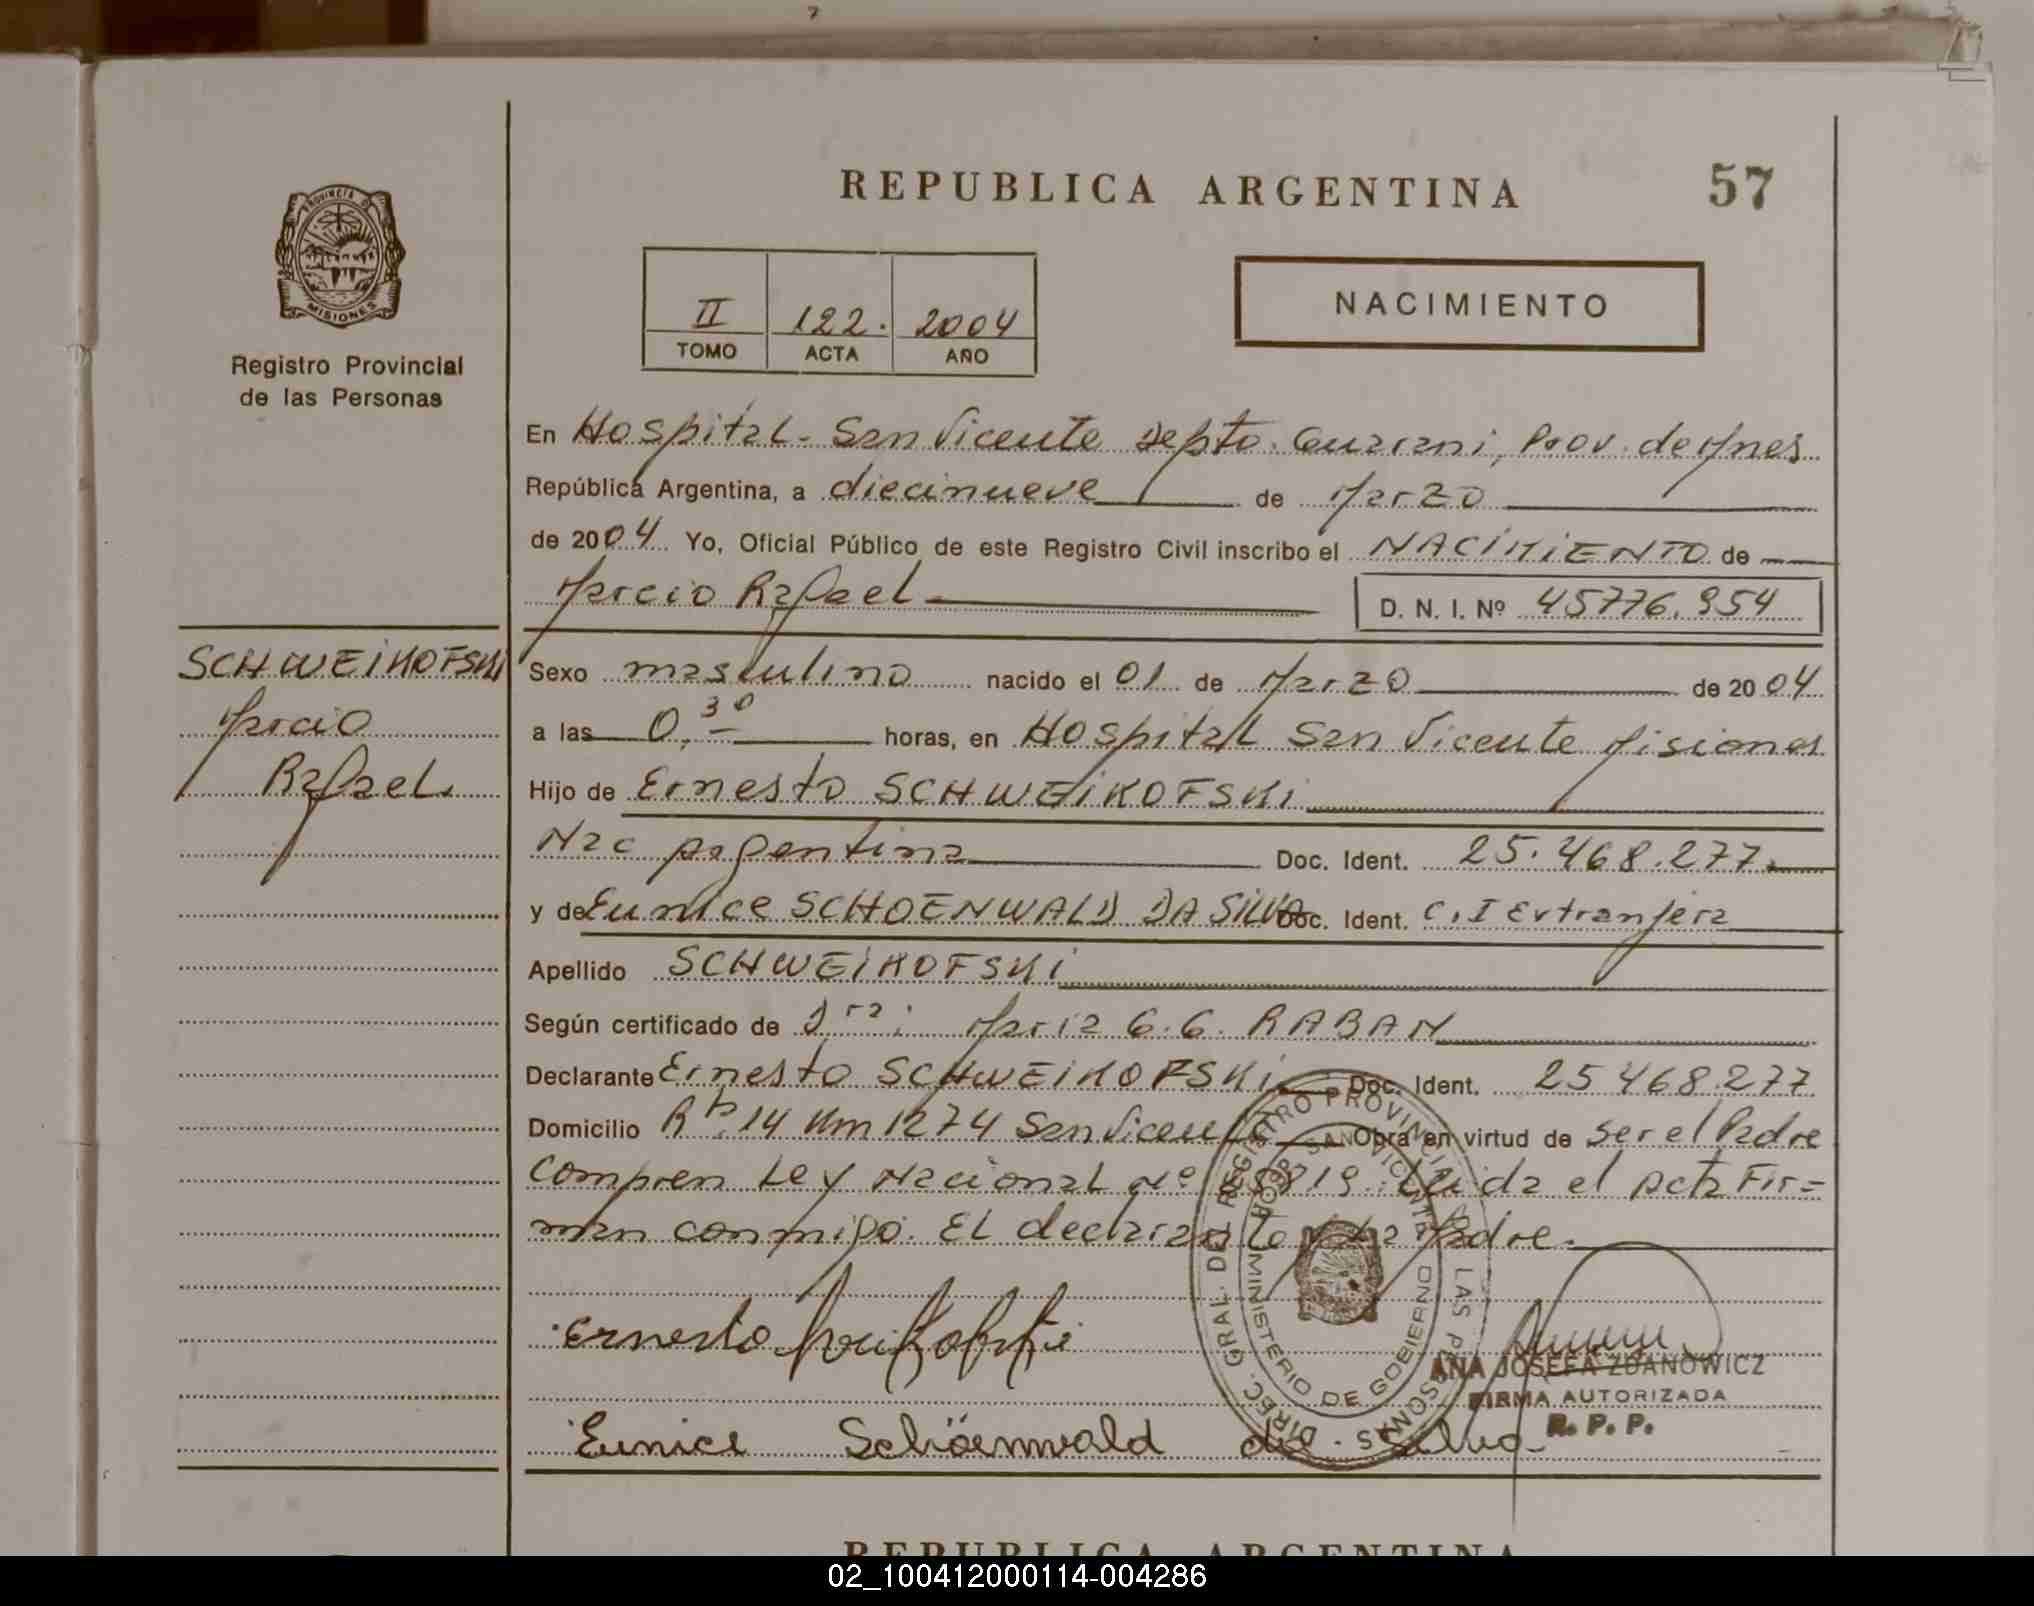 REPUBLICA ARGENTINA
57
PROVINCIA DE
MISIONES
Registro Provincial
de las Personas
II 122. 2004
TOMO ACTA AÑO
NACIMIENTO
En Hospital- San Vicente Depto. Guarani, Prov. de Mnes
República Argentina, a diecinueve de Marzo
de 2004 Yo, Oficial Público de este Registro Civil inscribo el NACIMIENTO de
Marcio Rafael D. N. I. Nº 45776.954
SCHWEIKOFSKI
Marcio
Rafael.
Sexo masculino nacido el 01 de Marzo de 2004
a las 0,30 horas, en Hospital San Vicente Misiones
Hijo de Ernesto SCHWEIKOFSKI
Nac Argentina Doc. Ident. 25.468.277
y de Eunice SCHOENWALD DA SILVA Doc. Ident. C.I Extranjera
Apellido SCHWEIKOFSKI
Según certificado de Dra: Maria G.G. RABAN
Declarante Ernesto SCHWEIKOFSKI Doc. Ident. 25468.277
Domicilio Rta. 14 Km 1274 San Vicente Obra en virtud de ser el Padre
Compren Ley Nacional Nº 23819. Leida el Acta Fir=
man conmigo. El declarante y la Madre.
Ernesto Schweikofski
Eunice Schöenwald da Silva
DIREC. GRAL. DEL REGISTRO PROVINCIAL DE LAS PERSONAS
MINISTERIO DE GOBIERNO
HOSP. SAN VICENTE
ANA JOSEFA ZDANOWICZ
FIRMA AUTORIZADA
R. P. P.
REPUBLICA ARGENTINA
02_100412000114-004286